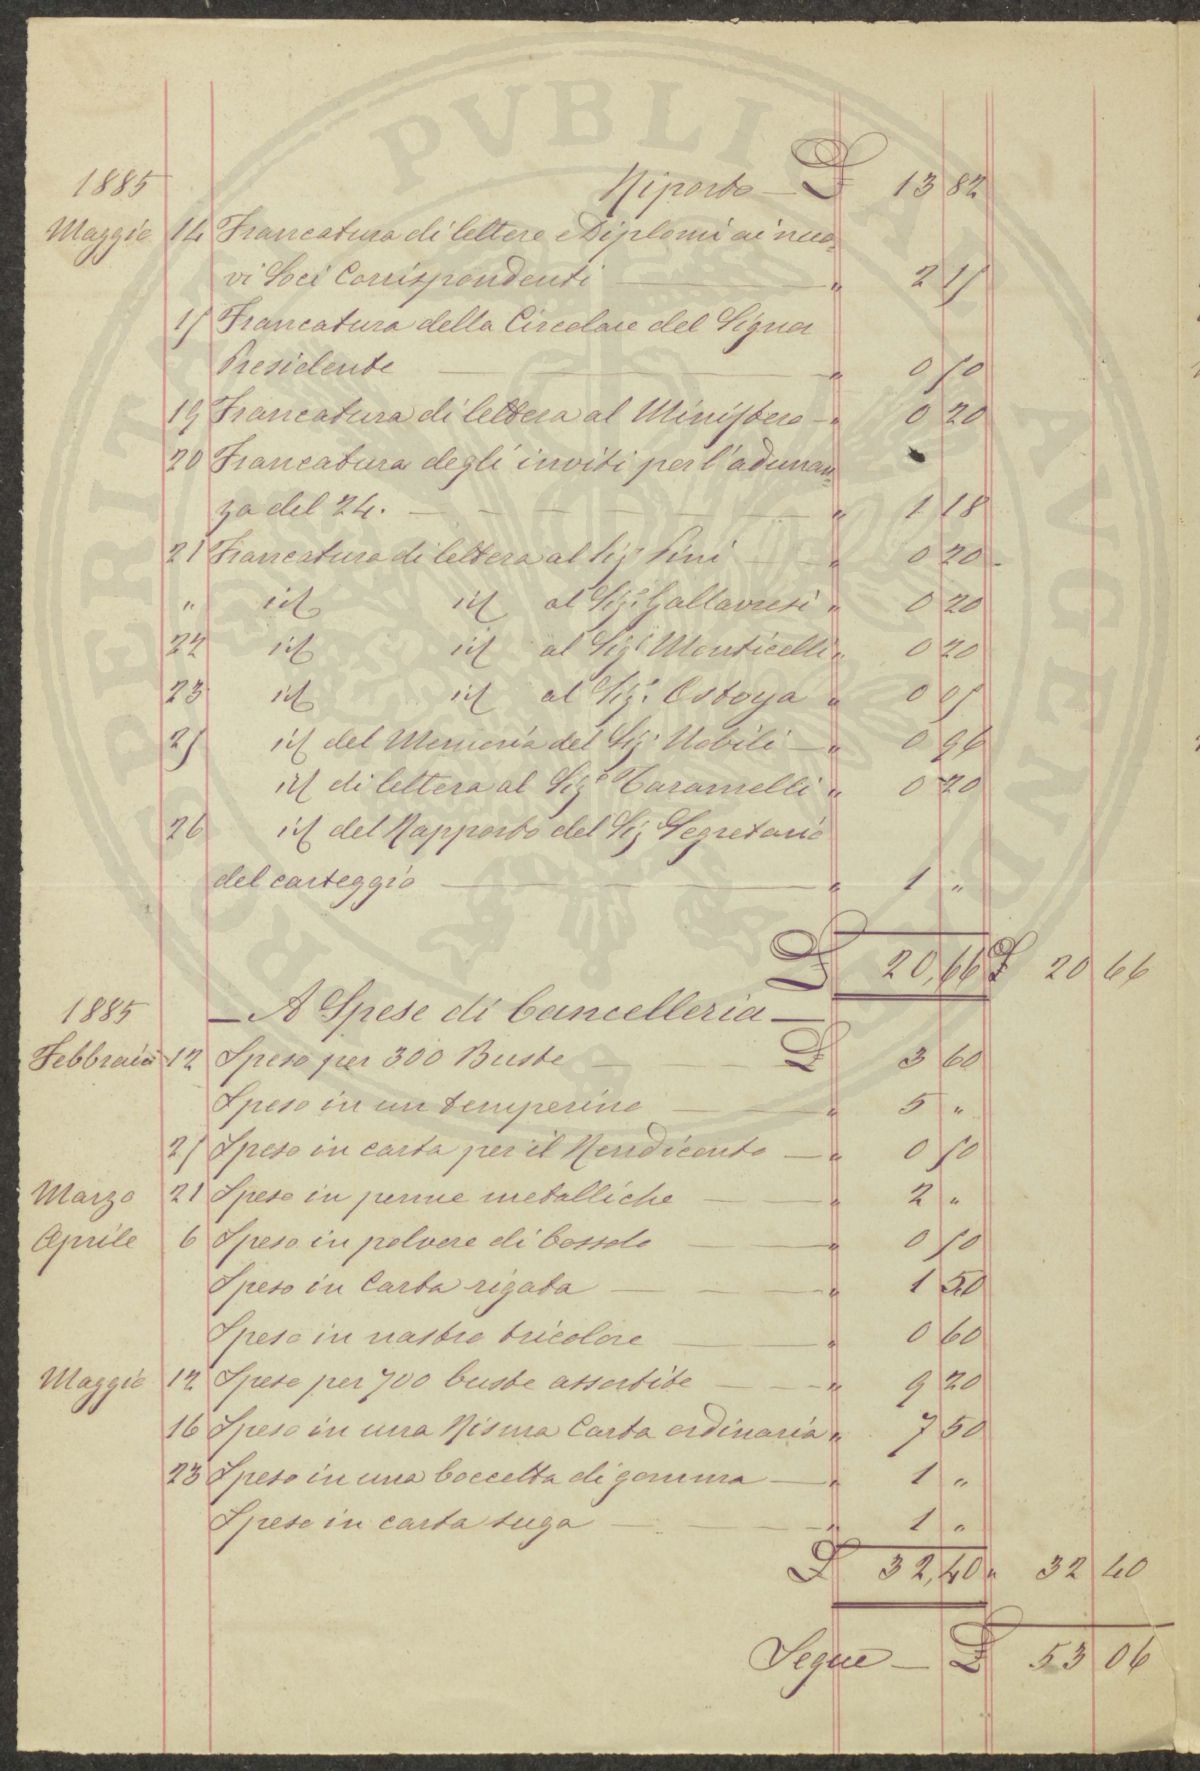 PROSPERITATI PVBLICAE AVGENDAE
1885 Riporto — £ 13 82
Maggio 14 Francatura di lettere e Diplomi ai nuo-
vi Soci Corrispondenti — " 2 15
15 Francatura della Circolare del Signor
Presidente — " 0 50
19 Francatura di lettera al Ministero — " 0 20
20 Francatura degli inviti per l'adunan-
za del 24. — " 1 18
21 Francatura di lettera al Sig. Pini — " 0 20
" id id al Sig. Gallavresi " 0 20
22 id id al Sig. Monticelli " 0 20
23 id id al Sig. Ostoya " 0 05
25 id del Memoria del Sig. Nobili — " 0 96
id di lettera al Sig. Taramelli " 0 20
26 id del Rapporto del Sig Segretario
del carteggio — " 1 "
£ 20,66 £ 20 66
1885 — A Spese di Cancelleria —
Febbraio 12 Speso per 300 Buste — £ 3 60
Speso in un temperino — " 5 "
25 Speso in carta per il Rendiconto — " 0 50
Marzo 21 Speso in penne metalliche — " 2 "
Aprile 6 Speso in polvere di bossolo — " 0 50
Speso in Carta rigata — " 1 50
Speso in nastro tricolore — " 0 60
Maggio 12 Speso per 700 buste assortite — " 9 20
16 Speso in una Risma Carta ordinaria " 7 50
23 Speso in una boccetta di gomma — " 1 "
Speso in carta suga — " 1 "
£ 32,40 " 32 40
Segue — £ 53 06